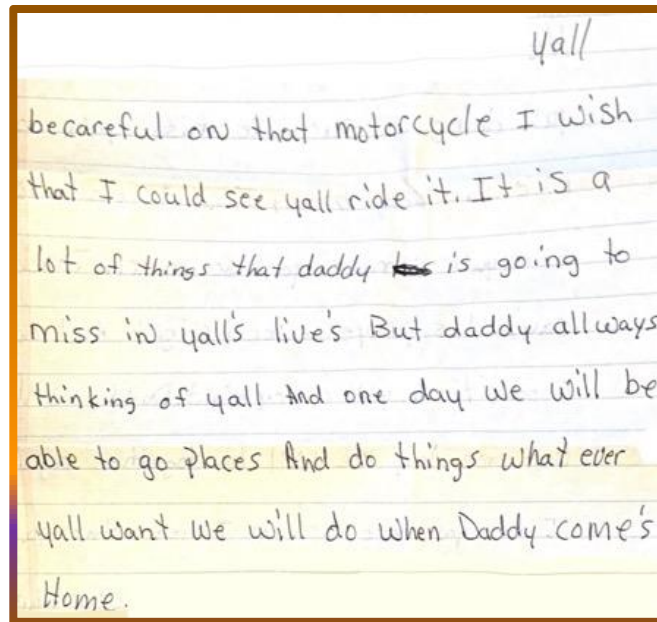 yall
becareful on that motorcycle I wish
that I could see yall ride it. It is a
lot of things that daddy is going to
miss in yall's live's But daddy allways
thinking of yall And one day we will be
able to go places And do things what ever
yall want we will do when Daddy come's
Home.